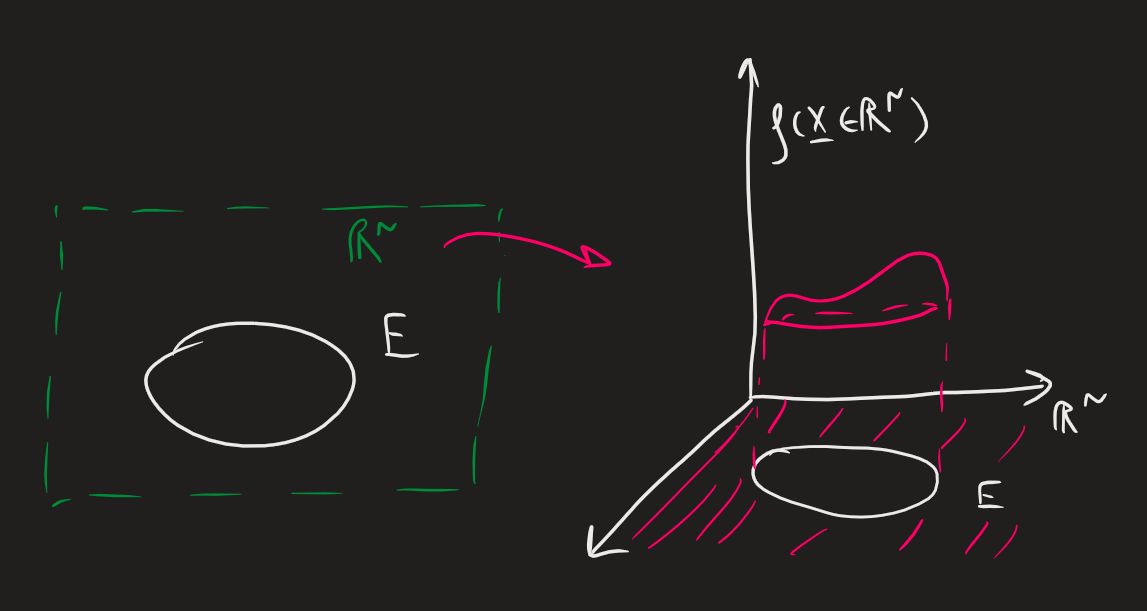 ℝᴺ
E
f(x̲ ∈ ℝᴺ)
ℝᴺ
E